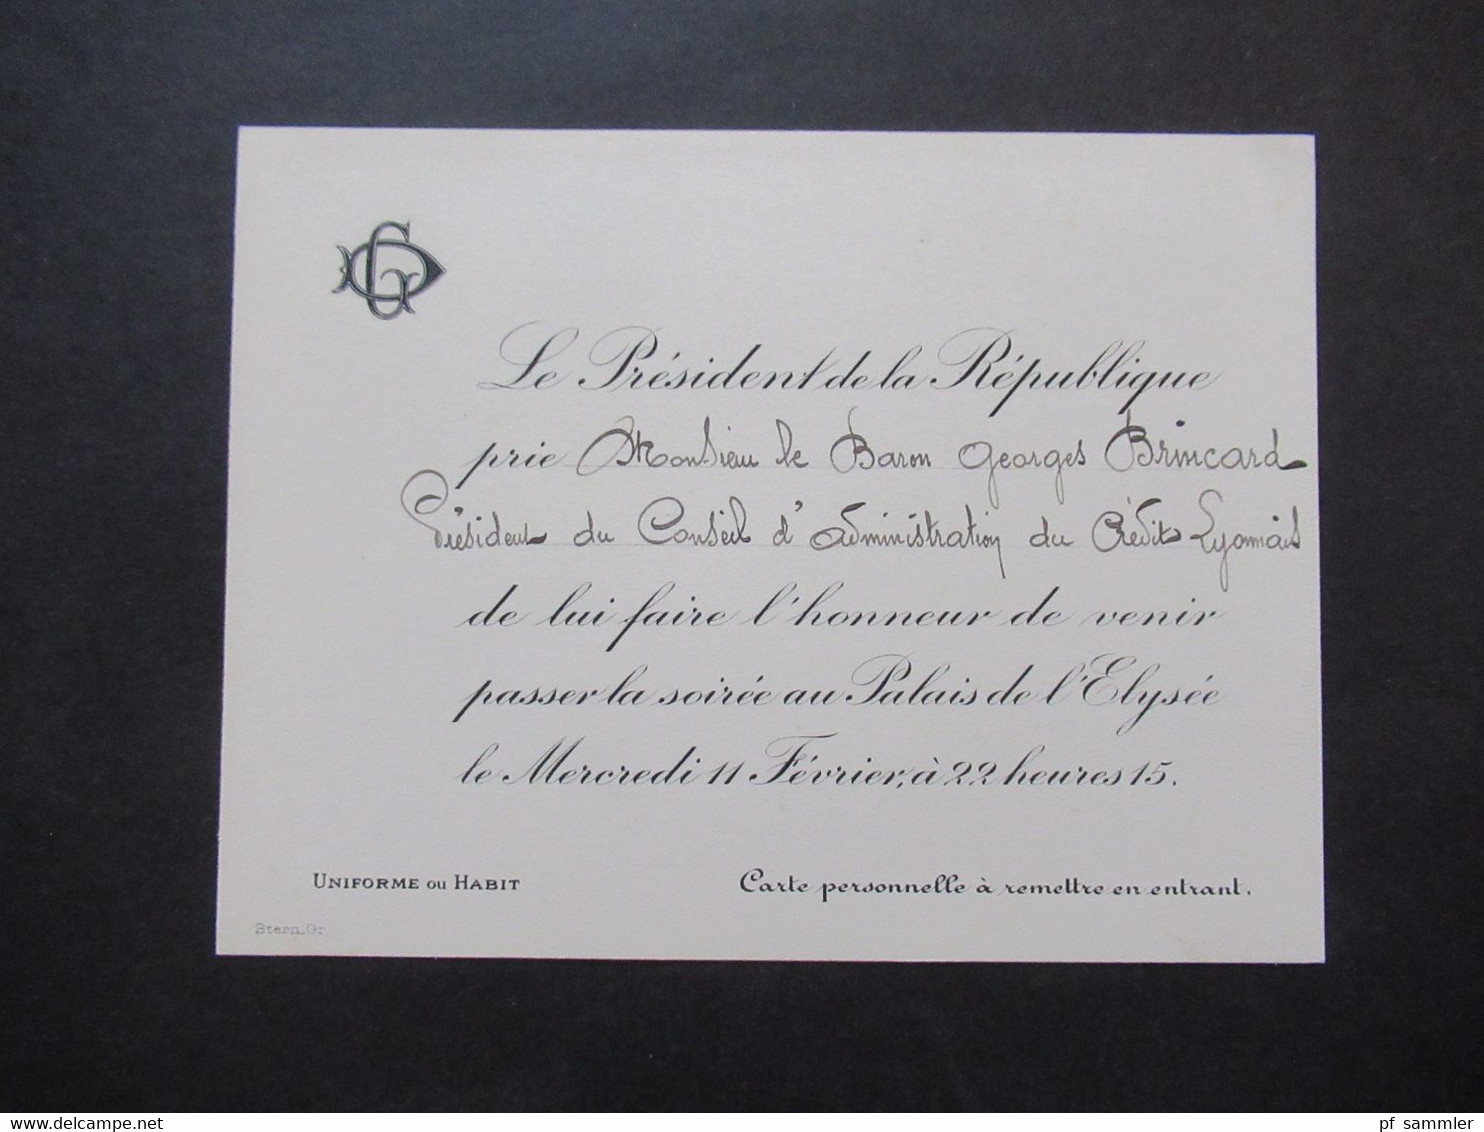 GD
Le Président de la République
prie Monsieur le Baron Georges Brincard
Président du Conseil d'Administration du Crédit Lyonnais
de lui faire l'honneur de venir
passer la soirée au Palais de l'Elysée
le Mercredi 11 Février, à 22 heures 15.
UNIFORME OU HABIT
Carte personnelle à remettre en entrant.
Stern.Gr.
pf sammler